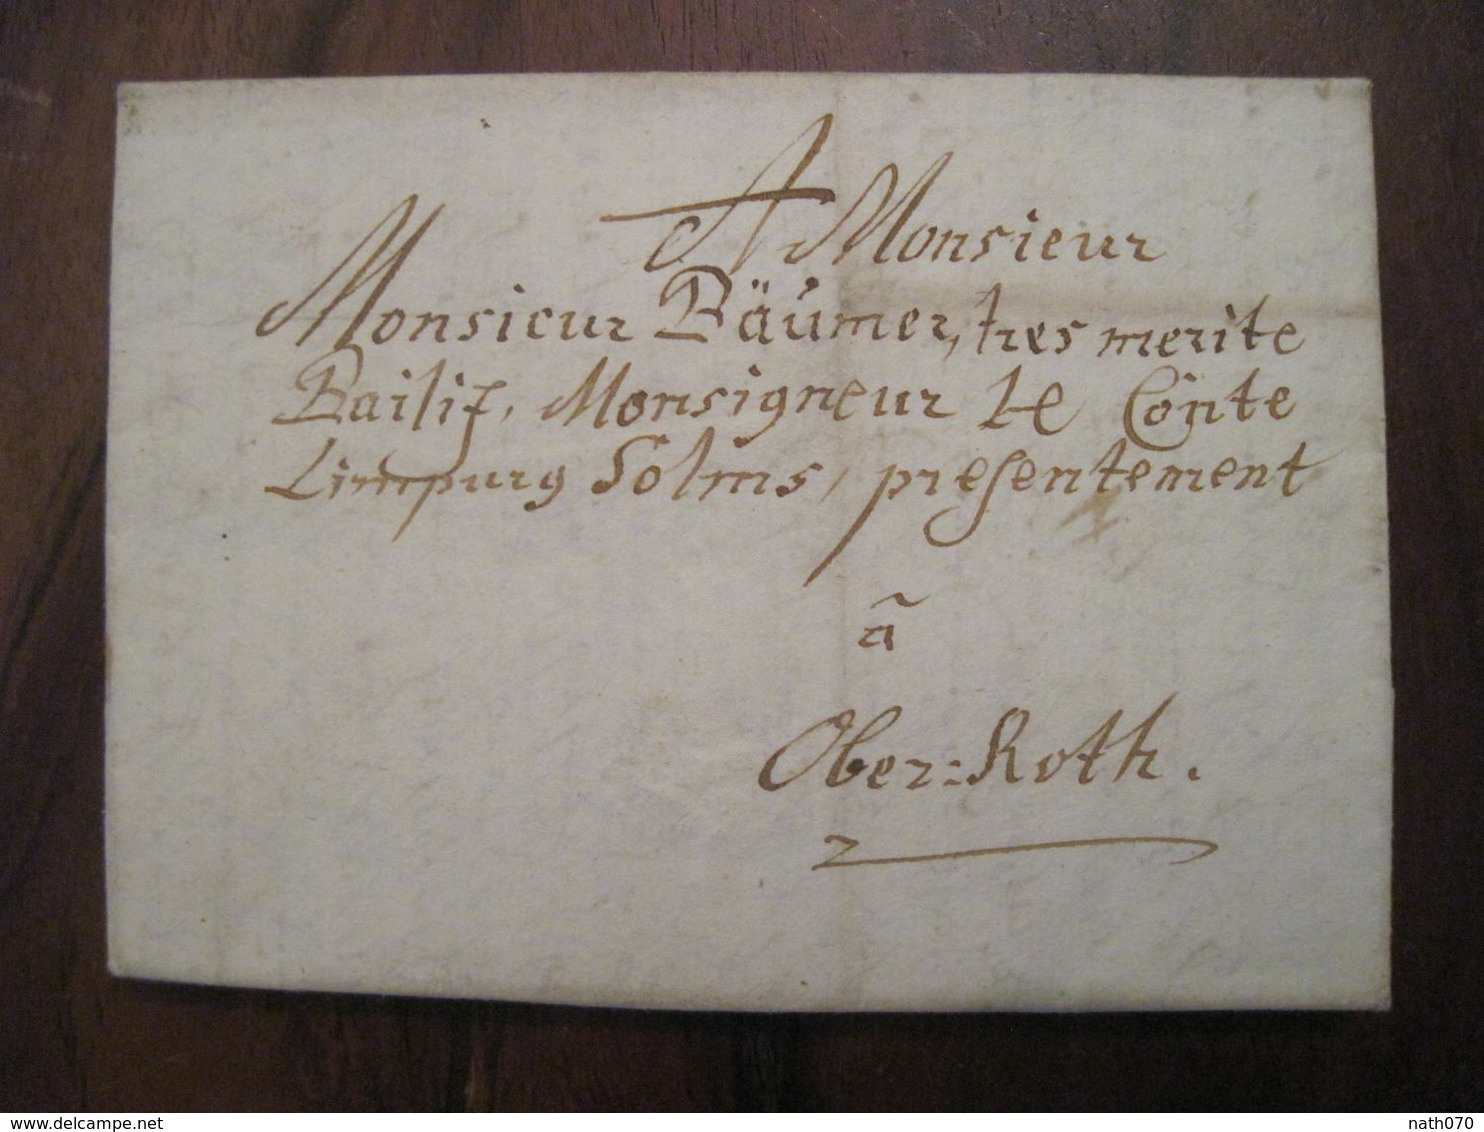 A Monsieur
Monsieur Bäumer, tres merite
Bailif, Monsigneur Le Conte
Limpurg Solms, presentement
ã
Ober=Roth.
delcampe.net
nath070